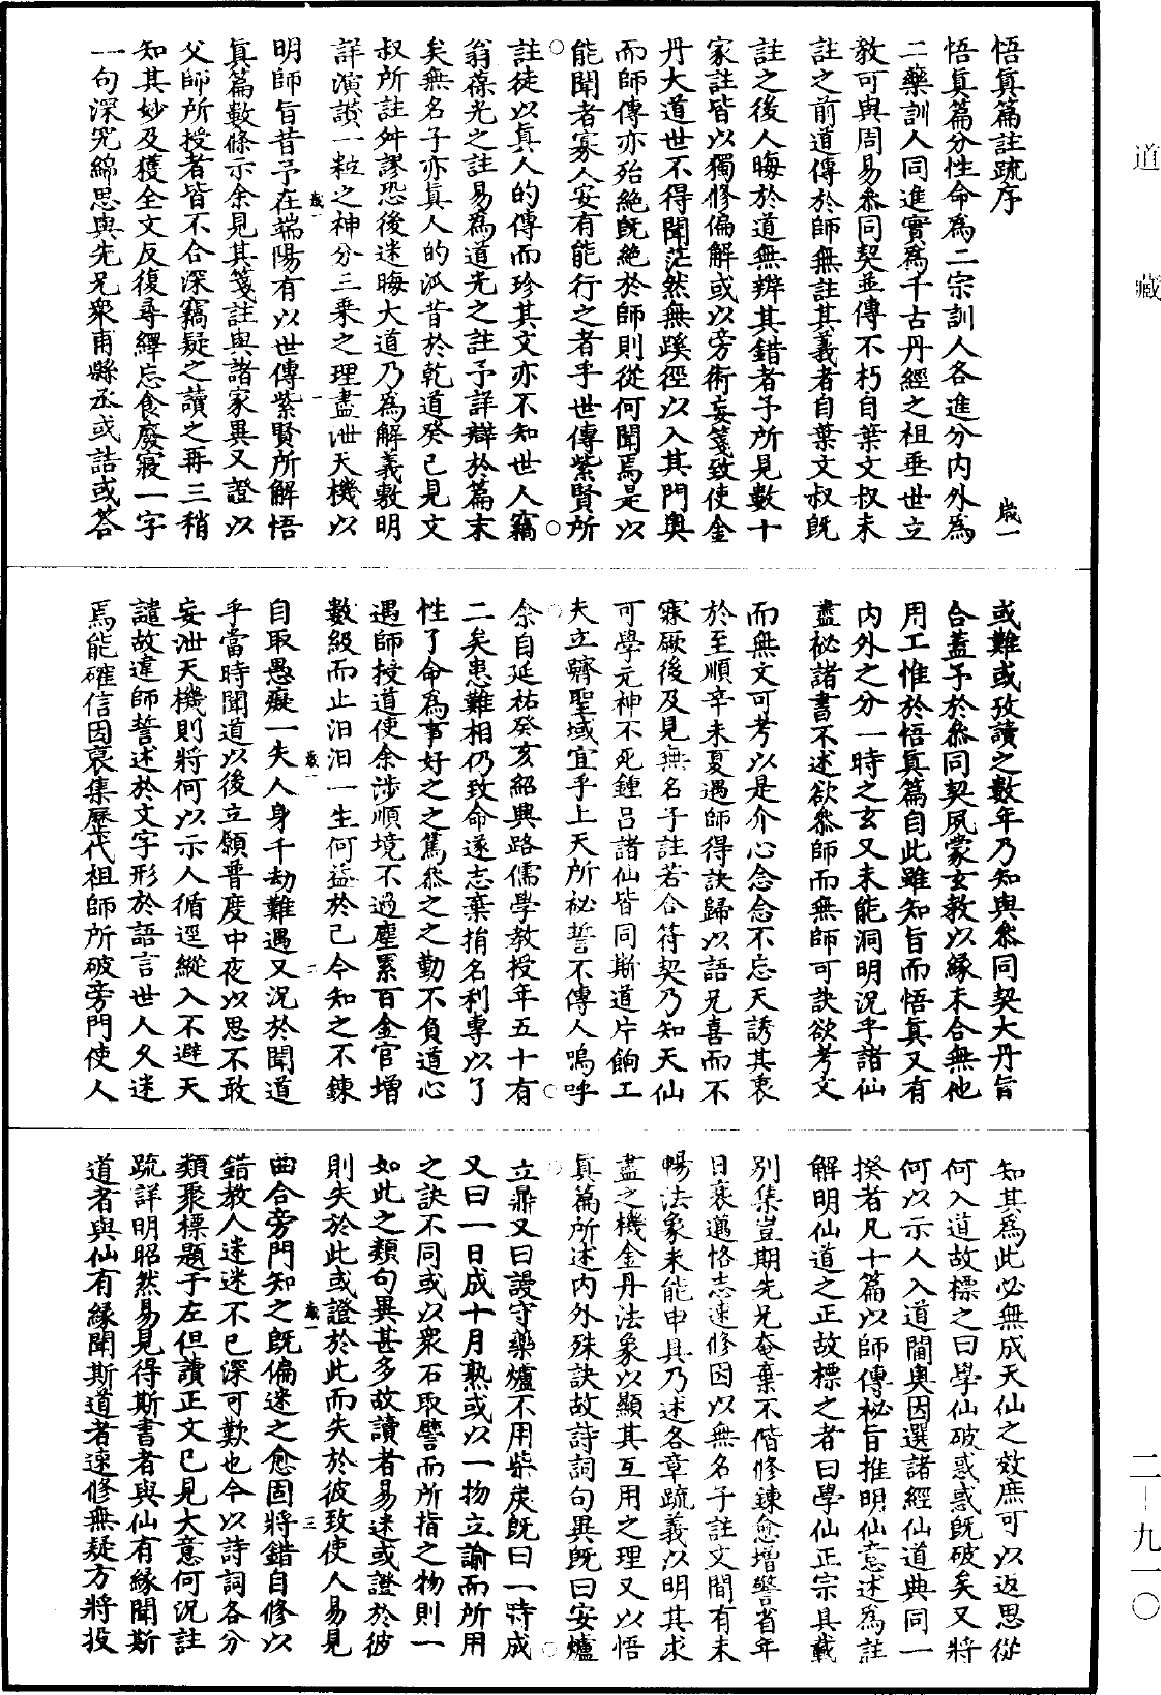 道藏
悟眞篇註疏序
歲一
悟眞篇分性命爲二宗訓人各進分内外爲
二藥訓人同進實爲千古丹經之祖垂世立
敎可與周易叅同契並傳不朽自葉文叔未
註之前道傳於師無註其義者自葉文叔旣
註之後人晦於道無辨其錯者予所見數十
家註皆以獨修偏解或以旁術妄箋致使金
丹大道世不得聞茫然無蹊徑以入其門奥
而師傳亦殆絶旣絶於師則從何聞焉是以
能聞者寡人安有能行之者乎世傳紫賢所
註徒以眞人的傳而珍其文亦不知世人竊
翁葆光之註易爲道光之註予詳辯於篇末
矣無名子亦眞人的派昔於乾道癸已見文
叔所註舛謬恐後迷晦大道乃爲解義敷明
詳演讃一粒之神分三乗之理盡泄天機以
歲一
一
明師旨昔予在端陽有以世傳紫賢所解悟
眞篇數條示余見其箋註與諸家異又證以
父師所授者皆不合深竊疑之讀之再三稍
知其妙及獲全文反復尋繹忘食廢寢一字
一句深究綿思與先兄衆甫縣丞或詰或答
或難或攷讀之數年乃知與叅同契大丹旨
合蓋予於叅同契夙蒙玄敎以緣未合無他
用工惟於悟眞篇自此雖知旨而悟眞又有
内外之分一時之玄又未能洞明況乎諸仙
盡祕諸書不述欲叅師而無師可訣欲考文
而無文可考以是介心念念不忘天誘其衷
於至順辛未夏遇師得訣歸以語兄喜而不
寐厥後及見無名子註若合符契乃知天仙
可學元神不死鍾吕諸仙皆同斯道片餉工
夫立躋聖域宜乎上天所祕誓不傳人嗚呼
余自延祐癸亥紹興路儒學敎授年五十有
二矣患難相仍致命遂志棄捐名利專以了
性了命爲事好之之篤叅之之勤不負道心
遇師授道使余涉順境不過塵累百金官增
數級而止汨汨一生何益於己今知之不鍊
歲一
二
自取愚癡一失人身千劫難遇又況於聞道
乎當時聞道以後立願普度中夜以思不敢
妄泄天機則將何以示人循逕縱入不避天
譴故違師誓述於文字形於語言世人久迷
焉能確信因裒集歷代祖師所破旁門使人
知其爲此必無成天仙之效庶可以返思從
何入道故標之曰學仙破惑惑旣破矣又將
何以示人入道閫奥因選諸經仙道典同一
揆者凡十篇以師傳祕旨推明仙意述爲註
解明仙道之正故標之者曰學仙正宗具載
别集豈期先兄奄棄不偕修鍊愈增警省年
日衰邁恪志速修因以無名子註文間有未
暢法象未能申具乃述各章疏義以明其求
盡之機金丹法象以顯其互用之理又以悟
眞篇所述内外殊訣故詩詞句異旣曰安爐
立鼎又曰謾守藥爐不用柴炭旣曰一時成
又曰一日成十月熟或以一物立諭而所用
之訣不同或以衆石取譬而所指之物則一
如此之類句異甚多故讀者易迷或證於彼
則失於此或證於此而失於彼致使人易見
歲一
三
曲合旁門知之旣偏迷之愈固將錯自修以
錯敎人迷迷不已深可歎也今以詩詞各分
類聚標題于左但讀正文已見大意何況註
疏詳明昭然易見得斯書者與仙有緣聞斯
道者與仙有緣聞斯道者速修無疑方將投
二－九一〇